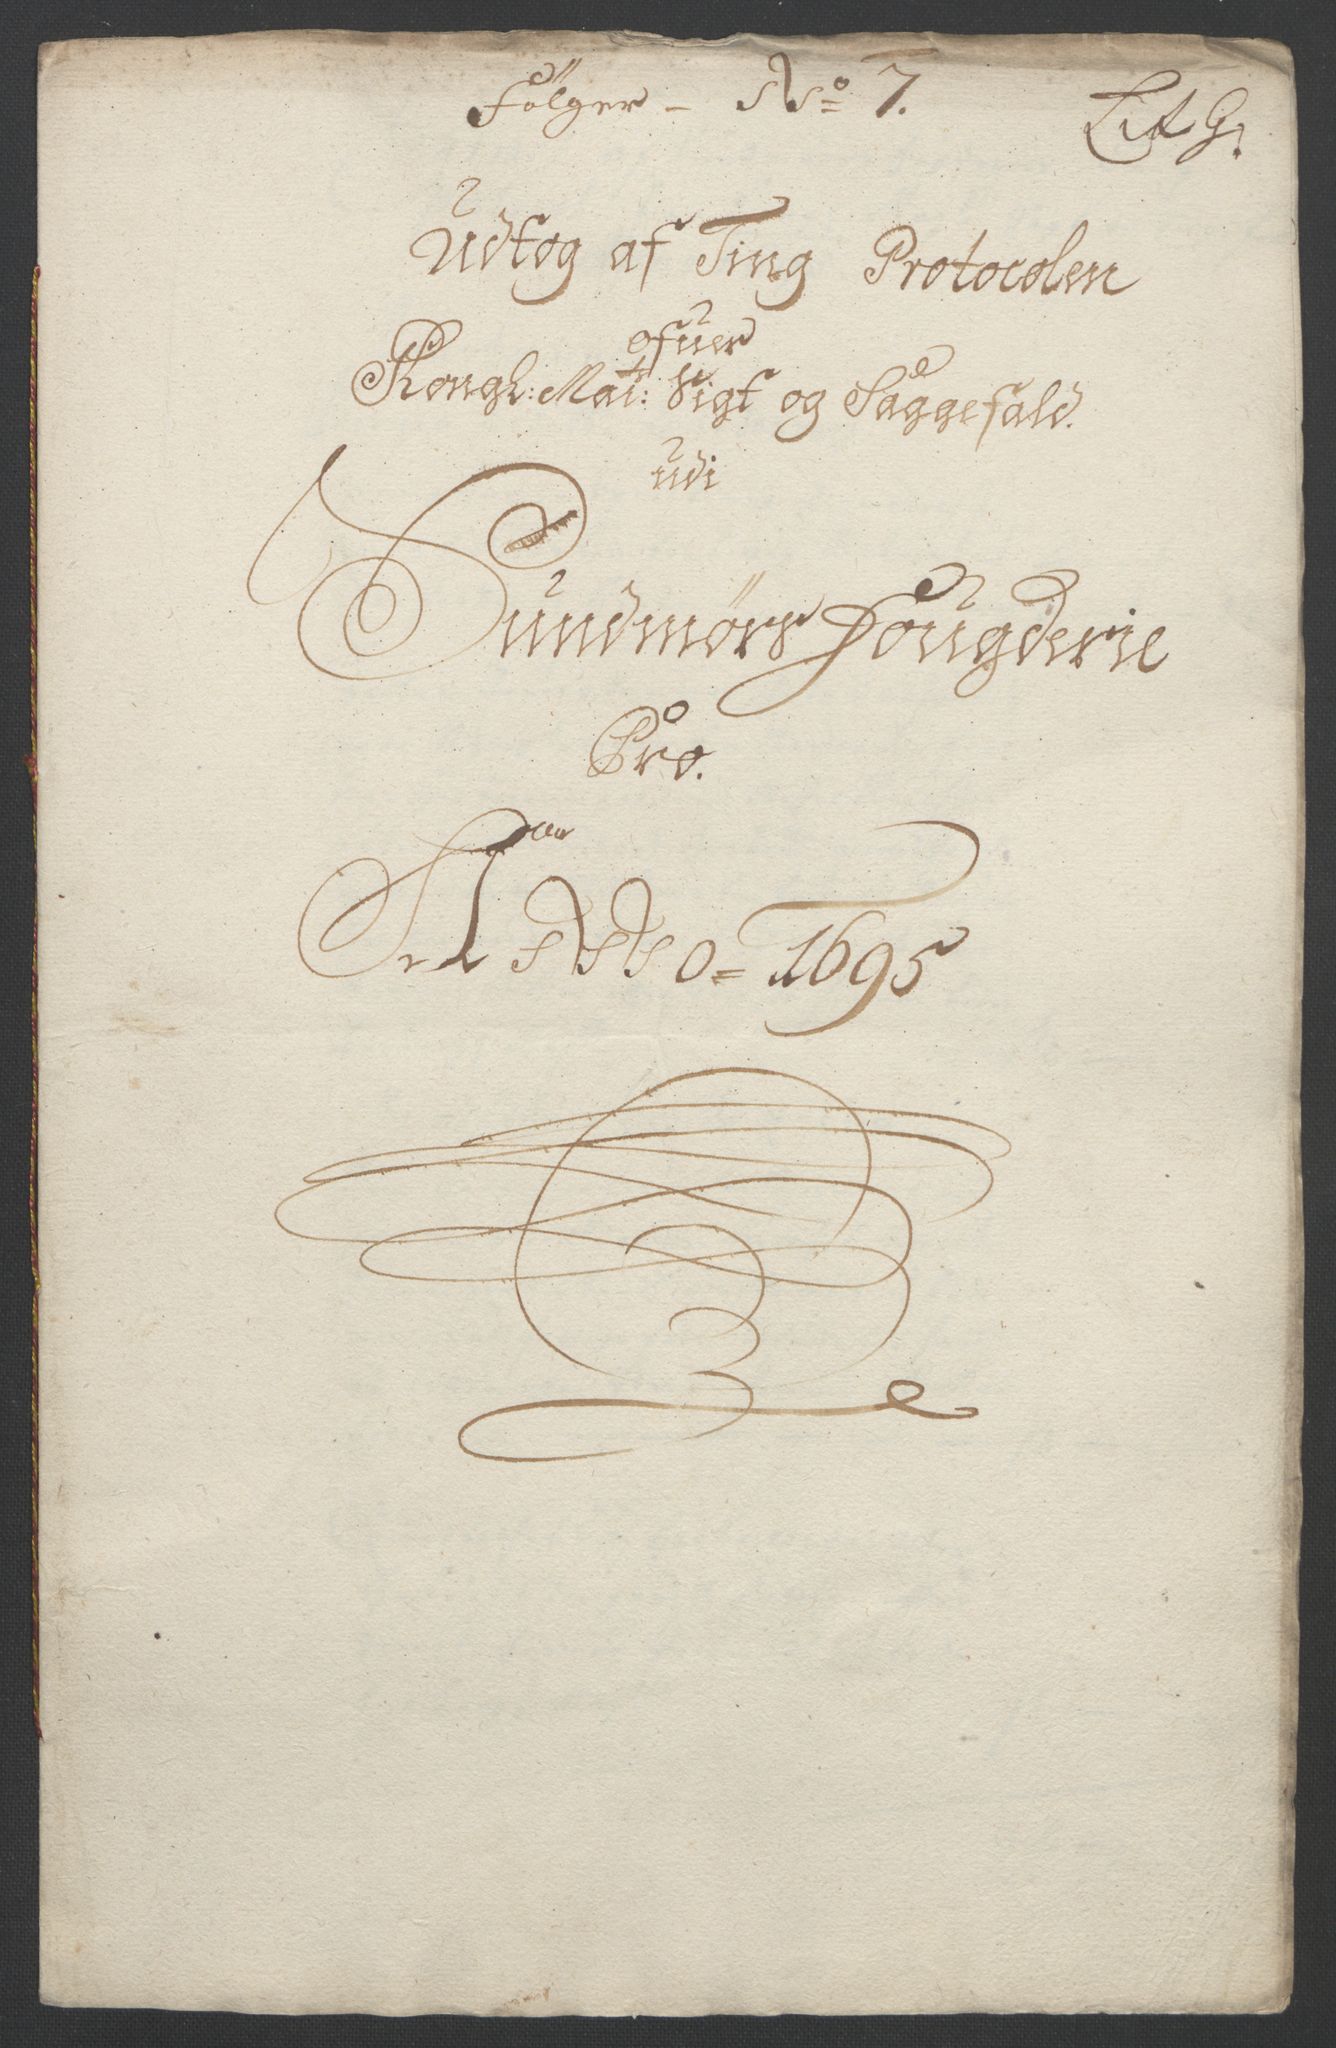 Følger - No 7.
Lit G.
Udtog af Ting Protocolen
ofuer
Kongl: Mai: Sigt og Saggefald.
udi
Sundmørs Fougderie
Pro.
Anno = 1695